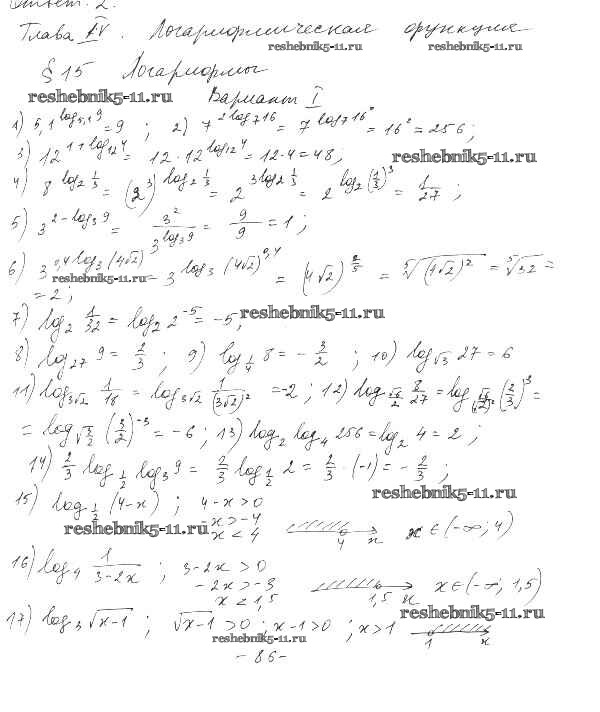 Ответ. 2.
Глава IV. Логарифмическая функция
reshebnik5-11.ru reshebnik5-11.ru
§ 15 Логарифмы
reshebnik5-11.ru Вариант I
1) 5,1^{log_{5,1} 9} = 9 ; 2) 7^{2 log_7 16} = 7^{log_7 16^2} = 16^2 = 256 ;
3) 12^{1+log_{12} 4} = 12 · 12^{log_{12} 4} = 12 · 4 = 48 ; reshebnik5-11.ru
4) 8^{log_2 1/3} = (2^3)^{log_2 1/3} = 2^{3 log_2 1/3} = 2^{log_2 (1/3)^3} = 1/27 ;
5) 3^{2 - log_3 9} = 3^2 / 3^{log_3 9} = 9/9 = 1 ;
6) 3^{0,4 log_3 (4√2)} = 3^{log_3 (4√2)^{0,4}} = (4√2)^{2/5} = ⁵√((4√2)^2) = ⁵√32 =
reshebnik5-11.ru
= 2 ;
7) log_2 1/32 = log_2 2^{-5} = -5 ; reshebnik5-11.ru
8) log_{27} 9 = 2/3 ; 9) log_{1/4} 8 = - 3/2 ; 10) log_{√3} 27 = 6
11) log_{3√2} 1/18 = log_{3√2} 1/(3√2)^2 = -2 ; 12) log_{√6/2} 8/27 = log (2/3)^3 =
= log_{√(3/2)} (3/2)^{-3} = -6 ; 13) log_2 log_4 256 = log_2 4 = 2 ;
14) 2/3 log_{1/2} log_3 9 = 2/3 log_{1/2} 2 = 2/3 · (-1) = - 2/3 ;
15) log_{1/2} (4-x) ; 4-x > 0 reshebnik5-11.ru
reshebnik5-11.ru -x > -4
x < 4 4 x x ∈ (-∞; 4)
16) log_4 1/(3-2x) ; 3-2x > 0
-2x > -3
x < 1,5 1,5 x x ∈ (-∞; 1,5)
reshebnik5-11.ru
17) log_3 √(x-1) ; √(x-1) > 0 ; x-1 > 0 ; x > 1 1 x
reshebnik5-11.ru
- 86 -